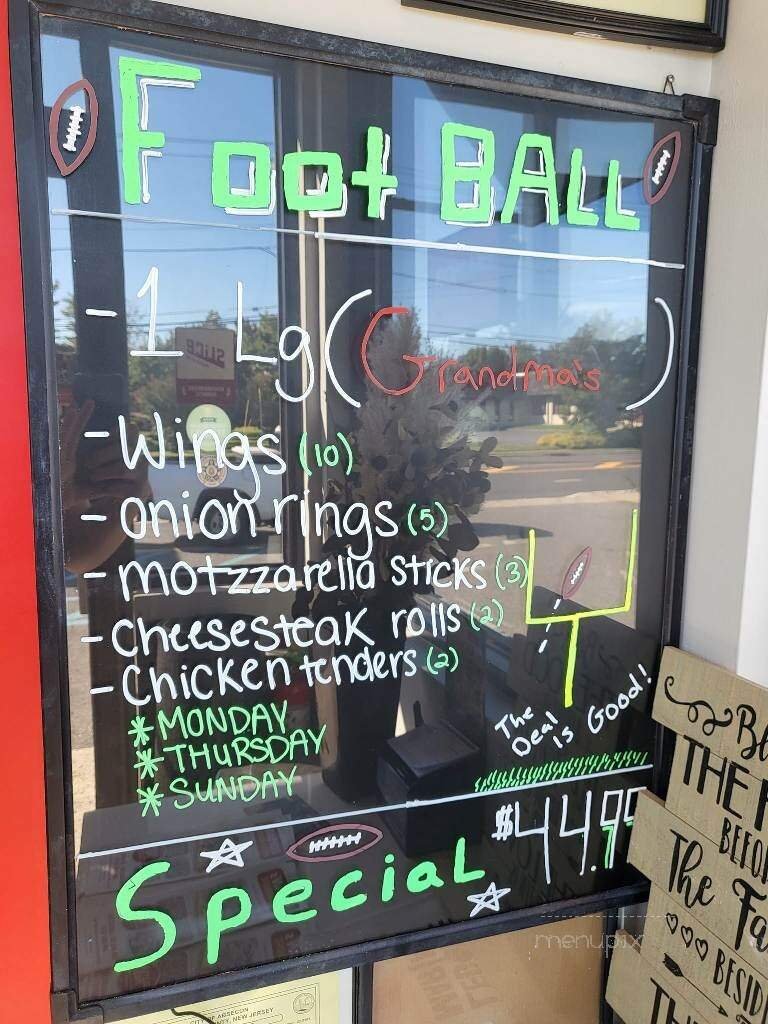 FootBALL
- 1 Lg (Grandma's)
- Wings (10)
- onion rings (5)
- motzzarella sticks (3)
- Cheesesteak rolls (2)
- Chicken tenders (2)
* MONDAY
* THURSDAY
* SUNDAY
The Deal is Good!
Special $44.99
SLICE
menupix
CITY OF ABSECON
NEW JERSEY
THE
The
BESID